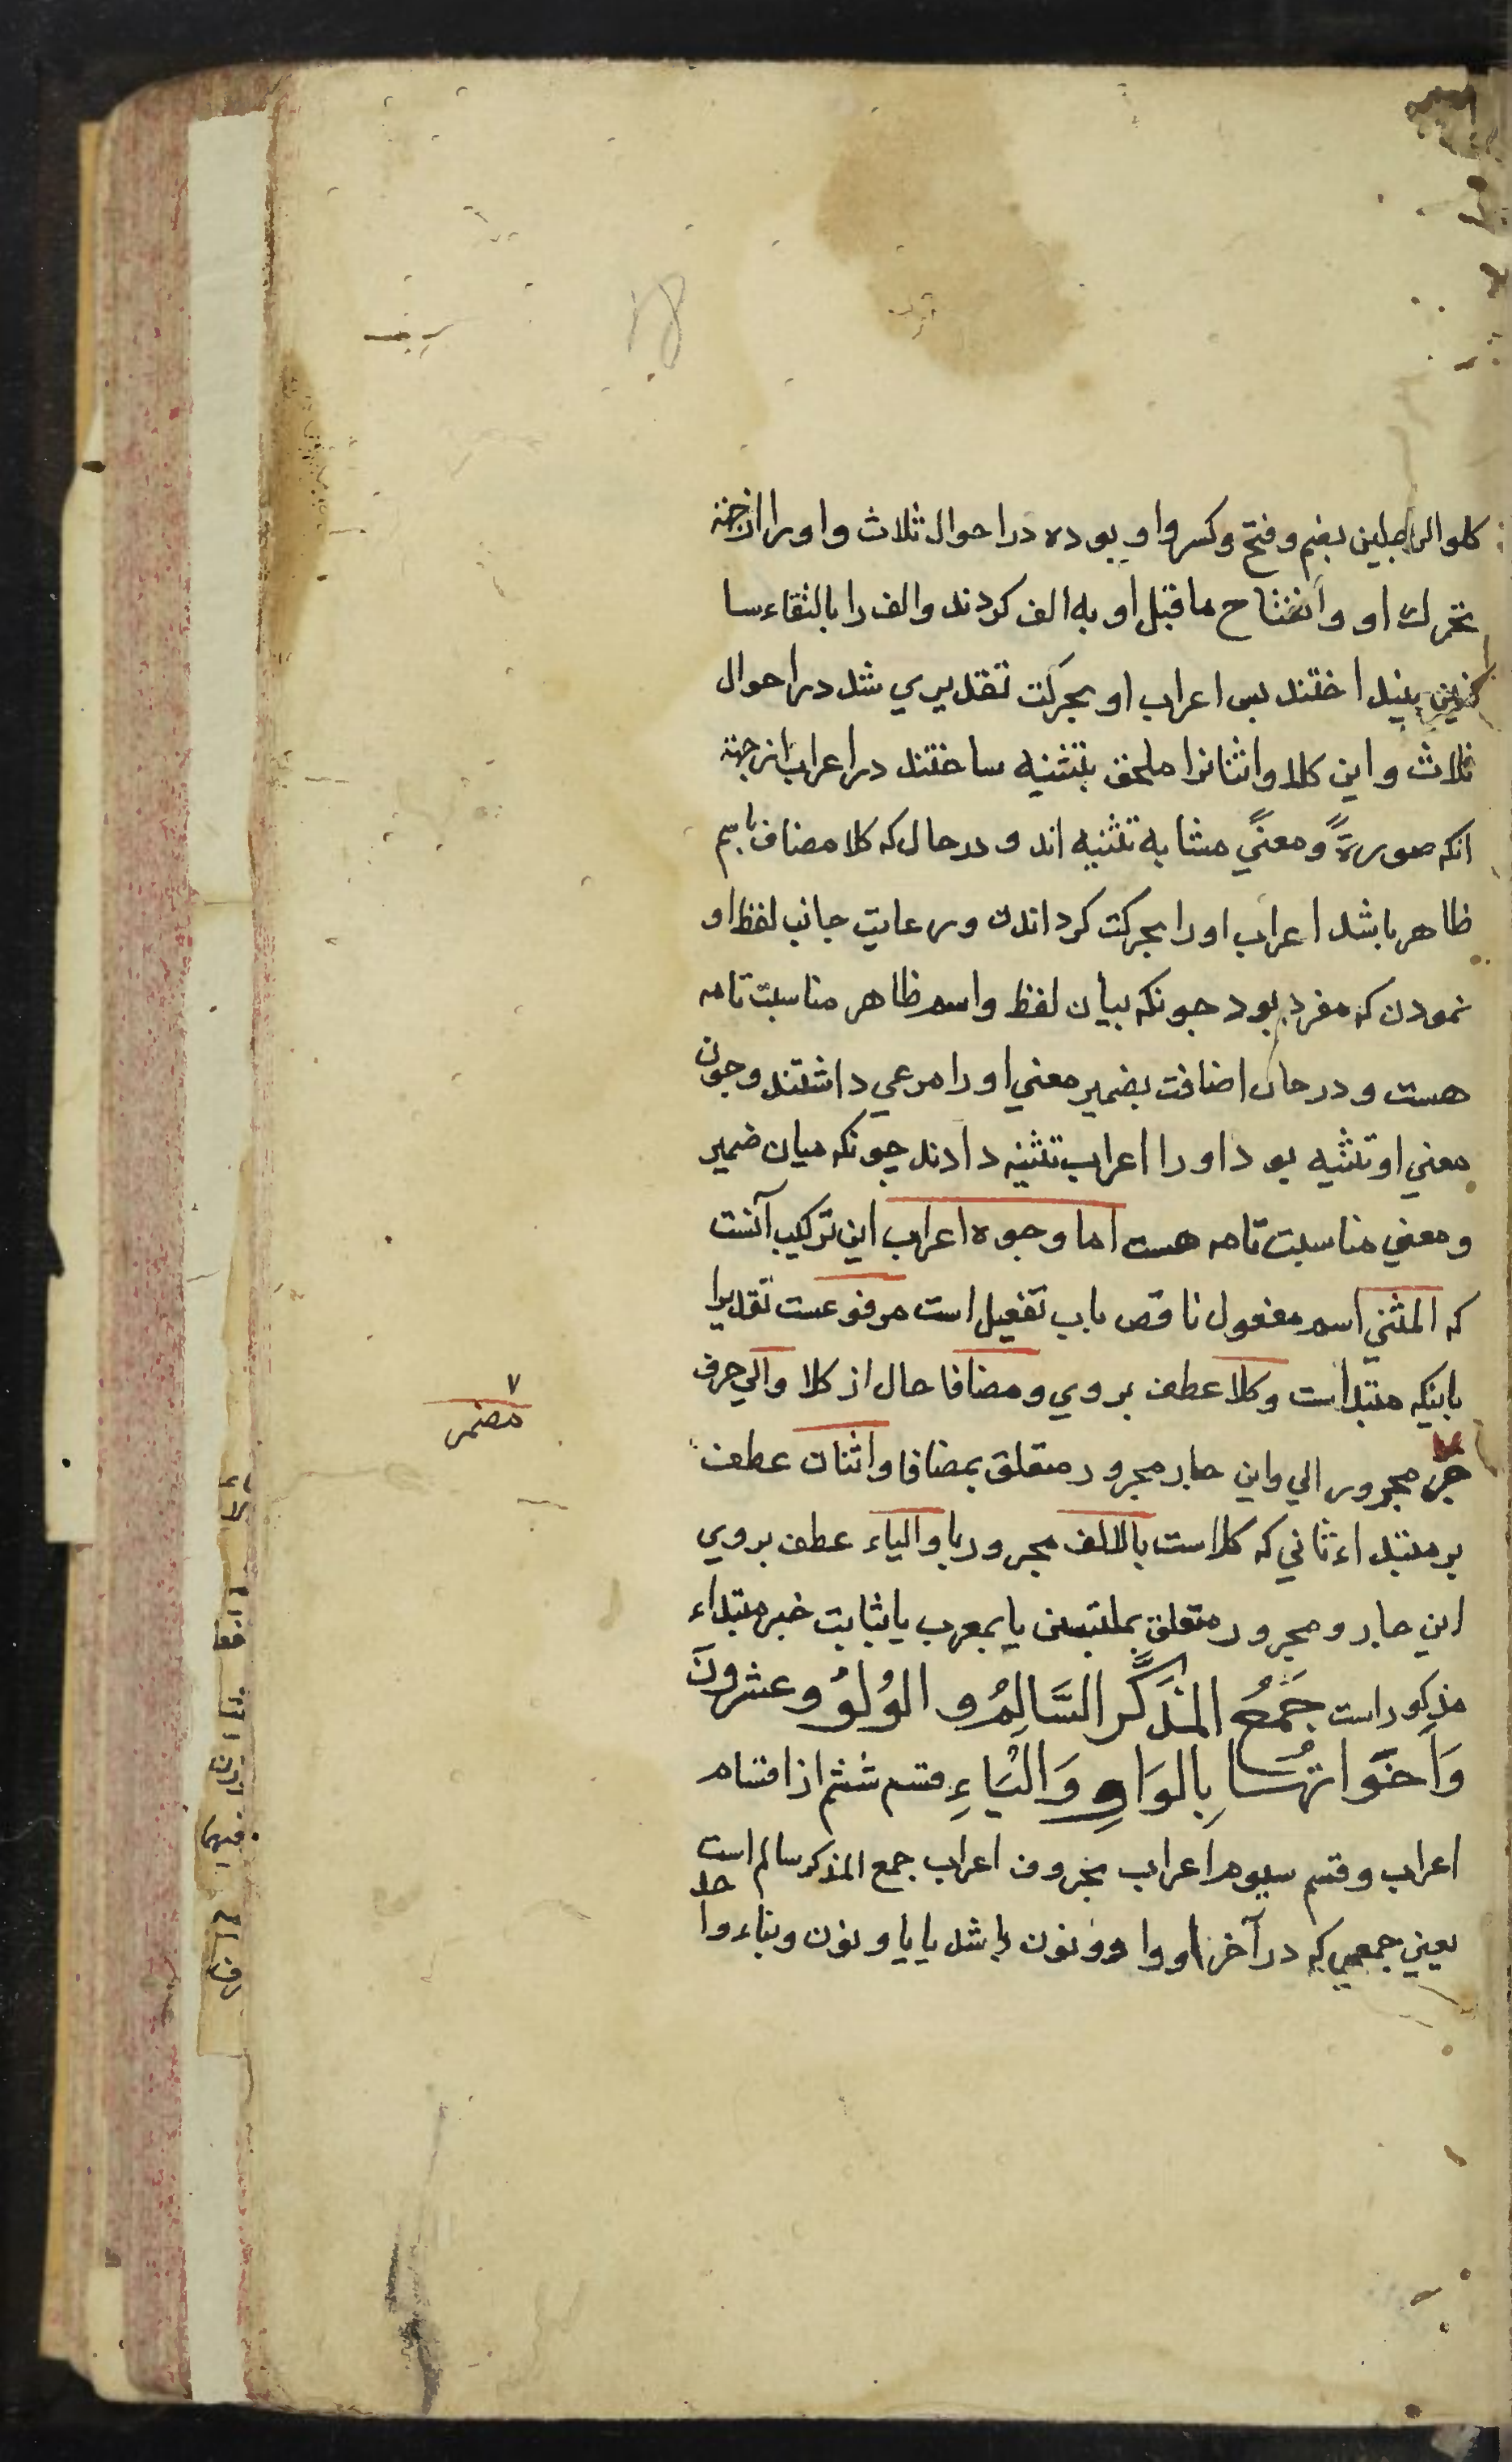 كلو الراجلین بضم و فتح و كسر واو بوده در احوال ثلاث و او را از جهة
تحرك او و انفتاح ماقبل او به الف كردند و الف را بالتقاء سا
كنین بینداختند بس اعراب او بحركت تقدیري شد در احوال
ثلاث و این كلا و اثنانرا ملحق بتثنیه ساختند در اعراب از جهة
انكه صورةً و معنيً مشابه تثنیه اند و در حال كه كلا مضاف باسم
ظاهر باشد اعراب او را بحركت كرداندن و رعایت جانب لفظ او
نمودن كه مفرد بود جونكه بیان لفظ و اسم ظاهر مناسبت تامه
هست و در حال اضافت بضمیر معني او را مرعي داشتند و جون
معني او تثنیه بود او را اعراب تثنیه دادند چونكه میان ضمیر
و معني مناسبت تامه هست اما وجوه اعراب این تركیب آنست
كه المثني اسم مفعول ناقص باب تفعیل است مرفوعست تقدیرا
باینكه مبتدا است و كلا عطف بروي و مضافا حال از كلا و الي حرف
جر مجرور الي و این جار مجرور متعلق بمضافا و اثنان عطف
بر مبتداء ثاني كه كلاست بالالف مجرور با و الیاء عطف بروي
این جار و مجرور متعلق بملتبس یا بمعرب یا بثابت خبر مبتداء
مذكور است جَمْعُ المُذَكَّرِ السَّالِمُ و الوُلوُ و عشرونَ
وَاَخَوَاتهُا بِالوَاوِ وَالْیَاءِ قسم ششم از اقسام
اعراب و قسم سیوم اعراب بحروف اعراب جمع المذكر سالم است
یعني جمعي كه در آخر او واو و نون باشد یا یا و نون و بناء واحد
٧
مضمر